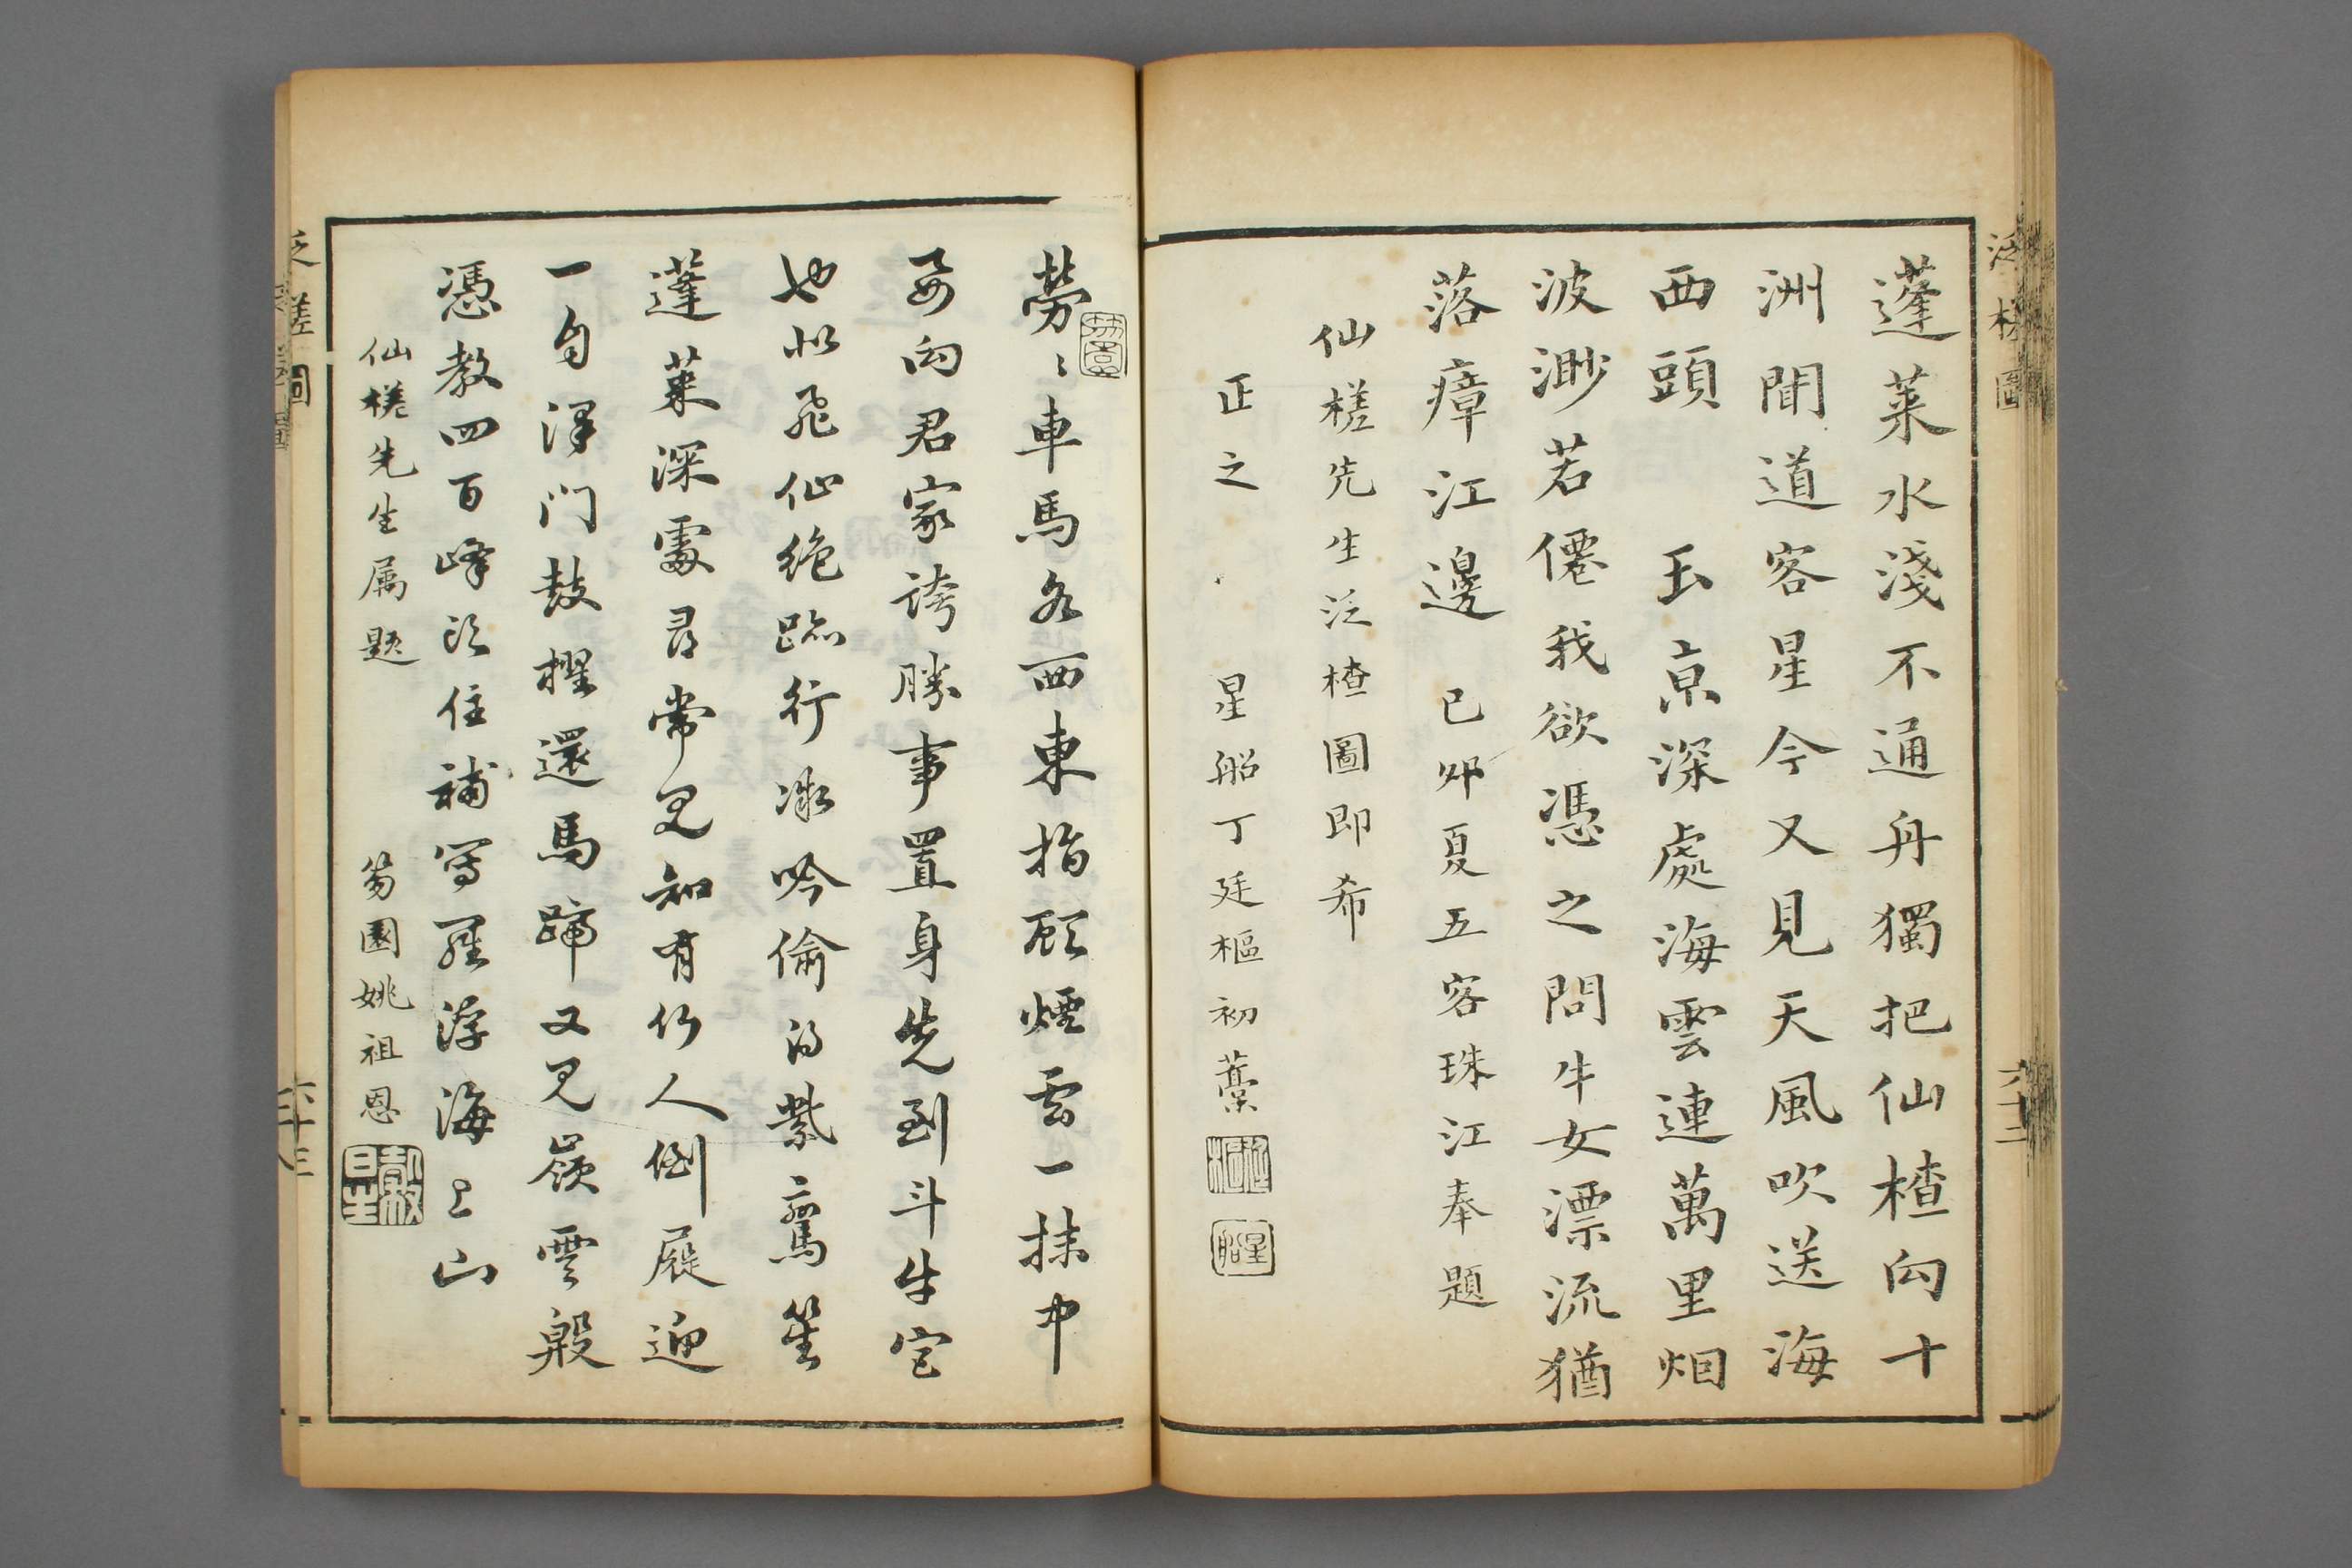 泛槎圖
六十二
蓬萊水淺不通舟獨把仙楂向十
洲聞道客星今又見天風吹送海
西頭　玉京深處海雲連萬里烟
波渺若僊我欲憑之問牛女漂流猶
落瘴江邊　己夘夏五客珠江奉題
仙槎先生泛楂圖即希
正之　星船丁廷樞初藁
星船
芴園
勞〻車馬各西東指顧煙雲一抹中
要向君家誇勝事置身先到斗牛宮
也似飛仙絶跡行漵吟偷得紫鸞笙
蓬萊深處尋常見知有何人倒屐迎
一自津門鼓櫂還馬蹄又見嶺雲殷
憑教四百峰頭住補寫羅浮海上山
仙槎先生属題　芴園姚祖恩
泛槎圖
六十三